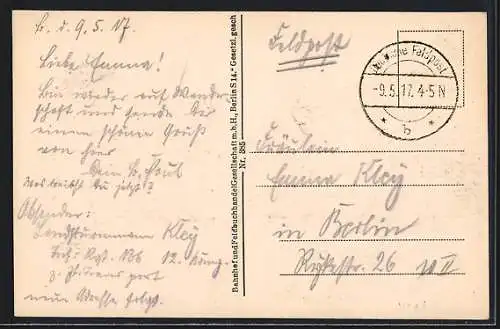 B. d. 9.5.17.
Liebe Emma!
Bin wieder auf Wander
schaft und sende Dir
einen schönen Gruß
von hier
Dein Br. Paul
Was machst Du jetzt?
Absender:
Landsturmmann Kley
Inf. Rgt. 186 12. Komp.
z. Zt. Transport
neue Adresse folgt.
Bahnhof und Feldbuchhandel Gesellschaft m.b.H., Berlin S 14.* Gesetzl. gesch
Nr. 385
Feldpost
Deutsche Feldpost
-9.5.17. 4-5 N
* b *
Fräulein
Emma Kley
in Berlin
26